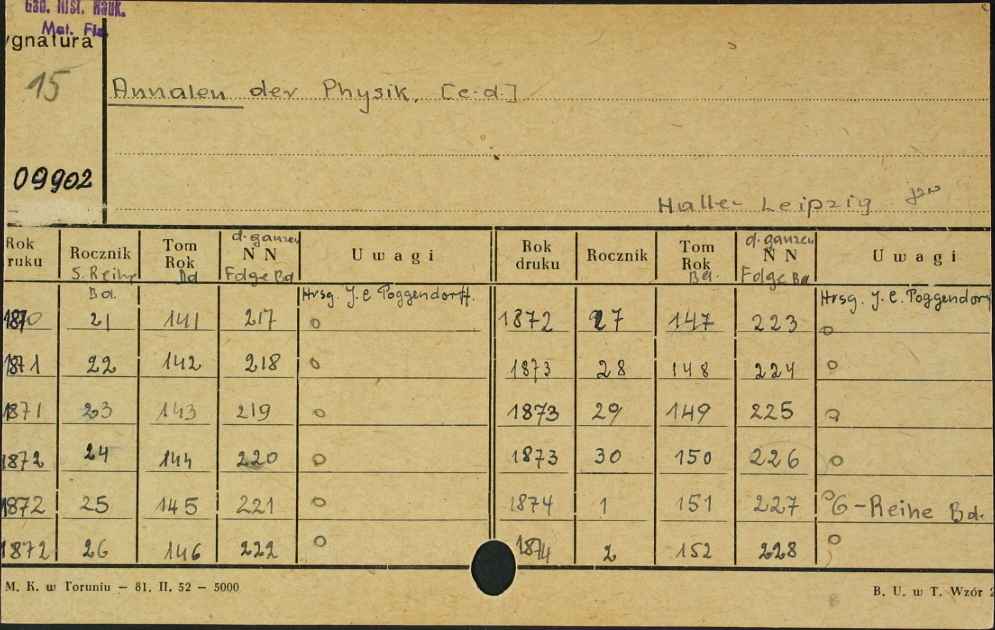 Gab. Hist. Nauk.
Mat. Fiz.
ygnatura
15
Annalen der Physik. [c.d.]
09902
Halle- Leipzig
Rok ruku | Rocznik 5. Reihe Bd. | Tom Rok Bd | d. ganzen N N Folge Bd | Uwagi | Rok druku | Rocznik | Tom Rok Bd. | d. ganzen N N Folge Bd | Uwagi
Hrsg. J. C. Poggendorff. | Hrsg. J. C. Poggendorf
1870 | 21 | 141 | 217 | o | 1872 | 27 | 147 | 223 | o
1871 | 22 | 142 | 218 | o | 1873 | 28 | 148 | 224 | o
1871 | 23 | 143 | 219 | o | 1873 | 29 | 149 | 225 | o
1872 | 24 | 144 | 220 | o | 1873 | 30 | 150 | 226 | o
1872 | 25 | 145 | 221 | o | 1874 | 1 | 151 | 227 | o 6-Reihe Bd.
1872 | 26 | 146 | 222 | o | 1874 | 2 | 152 | 228 | o
M. K. w Toruniu – 81. II. 52 – 5000
B. U. w T. Wzór 2